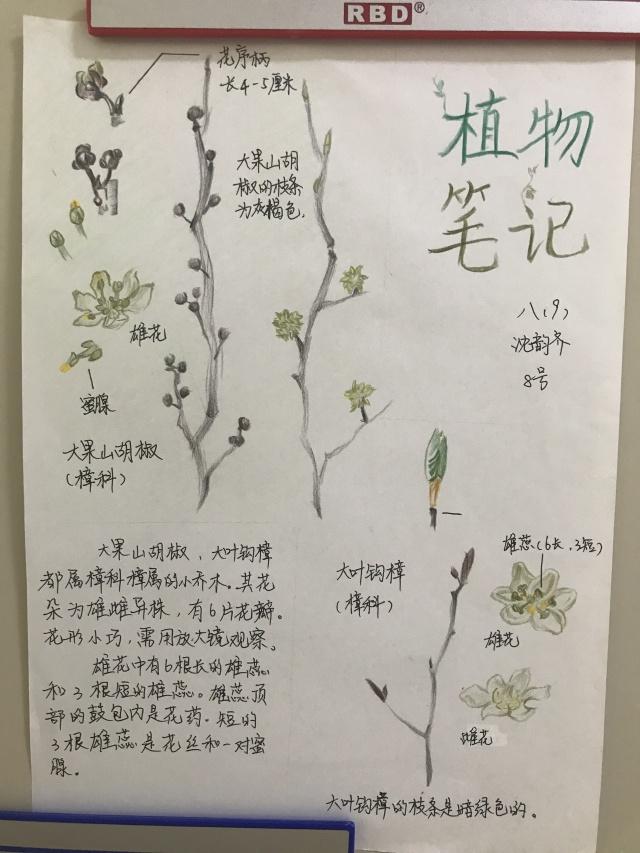 RBD®
花序柄
长4-5厘米
植物
笔记
大果山胡
椒的枝条
为灰褐色.
八(9)
沈韵齐
8号
雄花
蜜腺
大果山胡椒
(樟科)
大果山胡椒、大叶钩樟
都属樟科樟属的小乔木。其花
朵为雄雌异株，有6片花瓣。
花形小巧，需用放大镜观察。
雄花中有6根长的雄蕊
和3根短的雄蕊。雄蕊顶
部的鼓包内是花药.短的
3根雄蕊是花丝和一对蜜
腺。
大叶钩樟
(樟科)
雄蕊(6长.3短)
雄花
雌花
大叶钩樟的枝条是暗绿色的。